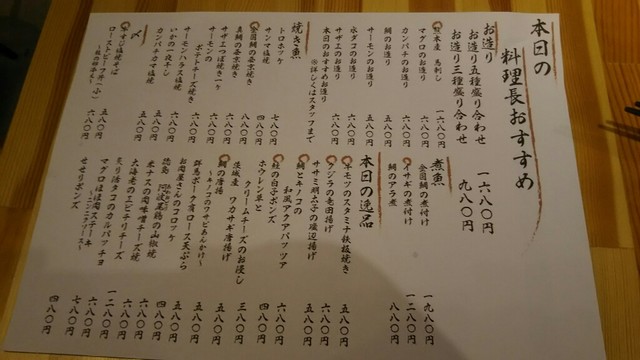 本日の
料理長おすすめ
お造り
お造り五種盛り合わせ 一六八〇円
お造り三種盛り合わせ 九八〇円
熊本産 馬刺し 一六八〇円
マグロのお造り 六八〇円
カンパチのお造り 六八〇円
鯛のお造り 五八〇円
サーモンのお造り 五八〇円
水ダコのお造り
サザエのお造り 六八〇円
本日のおすすめお造り
※詳しくはスタッフまで
焼き魚
トロホッケ 七八〇円
サンマ塩焼 四八〇円
金目鯛の西京焼き
真鯛の西京焼き 八八〇円
サザエつぼ焼き一ケ
サーモンの
ポテトチーズ焼き
サーモンハラス塩焼 六八〇円
いかの一夜干し 六八〇円
カンパチカマ塩焼 五八〇円
〆
牛すじ塩焼そば 五八〇円
ローストビーフ丼(小) 六八〇円
煮魚
金目鯛の煮付け 一九八〇円
イサギの煮付け 一二八〇円
鯛のアラの煮 八八〇円
本日の逸品
牛モツのスタミナ鉄板焼き 五八〇円
クジラの竜田揚げ 六八〇円
ササミ明太子の磯辺揚げ 五八〇円
鯛とキノコの
和風アクアパッツァ 六八〇円
鮭の白子ポンズ 四八〇円
ホウレン草と
クリームチーズのお浸し 三八〇円
茨城産 ワカサギ唐揚げ 五八〇円
鯛の唐揚
〜キノコのワサビあんかけ〜
群馬ポーク肩ロース天ぷら 五八〇円
お肉屋さんのコロッケ
徳島 阿波尾鶏の山椒焼 六八〇円
米ナスの肉味噌チーズ焼 六八〇円
大海老のエビチリチーズ 一二八〇円
炙り活タコのカルパッチョ 六八〇円
マグロほほ肉ステーキ 七八〇円
せせりポンズ 四八〇円